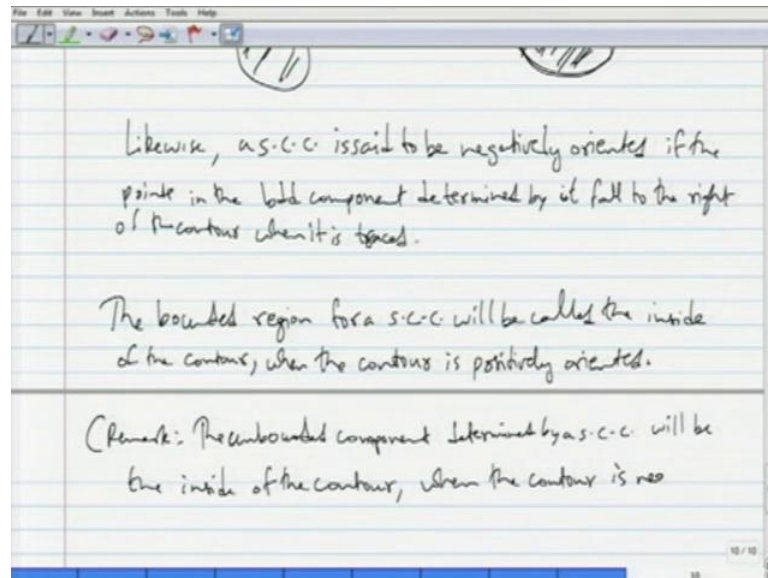 File Edit View Insert Actions Tools Help
Likewise, a s.c.c. is said to be negatively oriented if the
points in the bdd component determined by it fall to the right
of the contour when it is traced.
The bounded region for a s.c.c. will be called the inside
of the contour, when the contour is positively oriented.
(Remark: The unbounded component determined by a s.c.c. will be
the inside of the contour, when the contour is neg
10/10